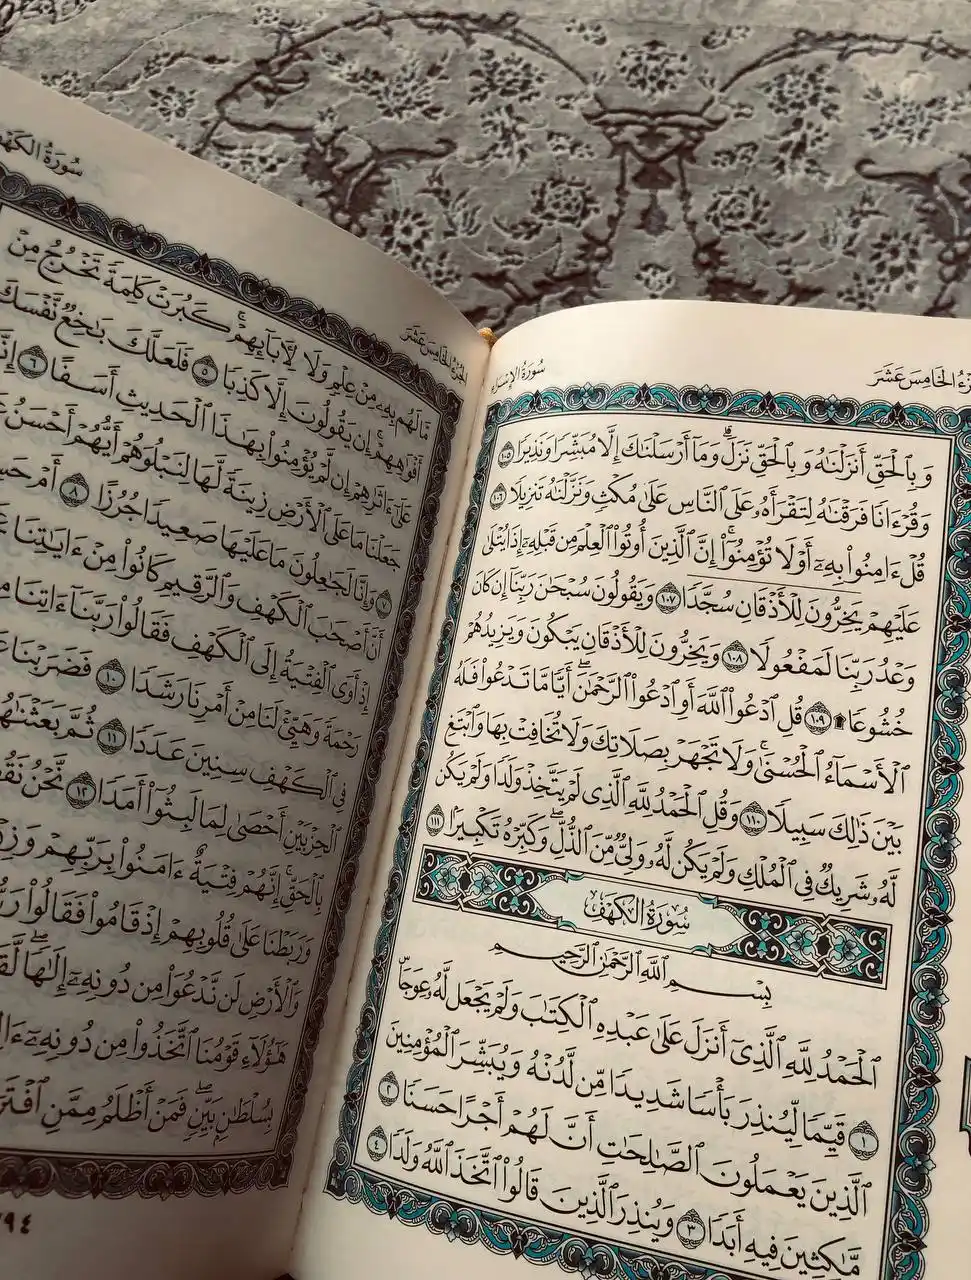 سُورَةُ الإِسْرَاءِ
الخَامِسَ عَشَرَ
وَبِٱلْحَقِّ أَنزَلْنَٰهُ وَبِٱلْحَقِّ نَزَلَۗ وَمَآ أَرْسَلْنَٰكَ إِلَّا مُبَشِّرًا وَنَذِيرًا ١٠٥
وَقُرْءَانًا فَرَقْنَٰهُ لِتَقْرَأَهُۥ عَلَى ٱلنَّاسِ عَلَىٰ مُكْثٍ وَنَزَّلْنَٰهُ تَنزِيلًا ١٠٦
قُلْ ءَامِنُوا۟ بِهِۦٓ أَوْ لَا تُؤْمِنُوٓا۟ۚ إِنَّ ٱلَّذِينَ أُوتُوا۟ ٱلْعِلْمَ مِن قَبْلِهِۦٓ إِذَا يُتْلَىٰ
عَلَيْهِمْ يَخِرُّونَ لِلْأَذْقَانِ سُجَّدًا ١٠٧ وَيَقُولُونَ سُبْحَٰنَ رَبِّنَآ إِن كَانَ
وَعْدُ رَبِّنَا لَمَفْعُولًا ١٠٨ وَيَخِرُّونَ لِلْأَذْقَانِ يَبْكُونَ وَيَزِيدُهُمْ
خُشُوعًا ۩ ١٠٩ قُلِ ٱدْعُوا۟ ٱللَّهَ أَوِ ٱدْعُوا۟ ٱلرَّحْمَٰنَۖ أَيًّا مَّا تَدْعُوا۟ فَلَهُ
ٱلْأَسْمَآءُ ٱلْحُسْنَىٰۚ وَلَا تَجْهَرْ بِصَلَاتِكَ وَلَا تُخَافِتْ بِهَا وَٱبْتَغِ
بَيْنَ ذَٰلِكَ سَبِيلًا ١١٠ وَقُلِ ٱلْحَمْدُ لِلَّهِ ٱلَّذِى لَمْ يَتَّخِذْ وَلَدًا وَلَمْ يَكُن
لَّهُۥ شَرِيكٌ فِى ٱلْمُلْكِ وَلَمْ يَكُن لَّهُۥ وَلِىٌّ مِّنَ ٱلذُّلِّۖ وَكَبِّرْهُ تَكْبِيرًا ١١١
سُورَةُ الكَهْفِ
بِسْمِ ٱللَّهِ ٱلرَّحْمَٰنِ ٱلرَّحِيمِ
ٱلْحَمْدُ لِلَّهِ ٱلَّذِىٓ أَنزَلَ عَلَىٰ عَبْدِهِ ٱلْكِتَٰبَ وَلَمْ يَجْعَل لَّهُۥ عِوَجَاۜ
١ قَيِّمًا لِّيُنذِرَ بَأْسًا شَدِيدًا مِّن لَّدُنْهُ وَيُبَشِّرَ ٱلْمُؤْمِنِينَ
ٱلَّذِينَ يَعْمَلُونَ ٱلصَّٰلِحَٰتِ أَنَّ لَهُمْ أَجْرًا حَسَنًا ٢
مَّٰكِثِينَ فِيهِ أَبَدًا ٣ وَيُنذِرَ ٱلَّذِينَ قَالُوا۟ ٱتَّخَذَ ٱللَّهُ وَلَدًا ٤
الجُزْءُ الخَامِسَ عَشَرَ
سُورَةُ الكَهْفِ
مَّا لَهُم بِهِۦ مِنْ عِلْمٍ وَلَا لِءَابَآئِهِمْۚ كَبُرَتْ كَلِمَةً تَخْرُجُ مِنْ
أَفْوَٰهِهِمْۚ إِن يَقُولُونَ إِلَّا كَذِبًا ٥ فَلَعَلَّكَ بَٰخِعٌ نَّفْسَكَ
عَلَىٰٓ ءَاثَٰرِهِمْ إِن لَّمْ يُؤْمِنُوا۟ بِهَٰذَا ٱلْحَدِيثِ أَسَفًا ٦ إِنَّا
جَعَلْنَا مَا عَلَى ٱلْأَرْضِ زِينَةً لَّهَا لِنَبْلُوَهُمْ أَيُّهُمْ أَحْسَنُ
٧ وَإِنَّا لَجَٰعِلُونَ مَا عَلَيْهَا صَعِيدًا جُرُزًا ٨ أَمْ
أَنَّ أَصْحَٰبَ ٱلْكَهْفِ وَٱلرَّقِيمِ كَانُوا۟ مِنْ ءَايَٰتِنَا
إِذْ أَوَى ٱلْفِتْيَةُ إِلَى ٱلْكَهْفِ فَقَالُوا۟ رَبَّنَآ ءَاتِنَا
رَحْمَةً وَهَيِّئْ لَنَا مِنْ أَمْرِنَا رَشَدًا ١٠ فَضَرَبْنَا
فِى ٱلْكَهْفِ سِنِينَ عَدَدًا ١١ ثُمَّ بَعَثْنَٰهُمْ
ٱلْحِزْبَيْنِ أَحْصَىٰ لِمَا لَبِثُوٓا۟ أَمَدًا ١٢ نَّحْنُ
بِٱلْحَقِّۚ إِنَّهُمْ فِتْيَةٌ ءَامَنُوا۟ بِرَبِّهِمْ
وَرَبَطْنَا عَلَىٰ قُلُوبِهِمْ إِذْ قَامُوا۟ فَقَالُوا۟
وَٱلْأَرْضِ لَن نَّدْعُوَا۟ مِن دُونِهِۦٓ إِلَٰهًاۖ
هَٰٓؤُلَآءِ قَوْمُنَا ٱتَّخَذُوا۟ مِن دُونِهِۦٓ
بِسُلْطَٰنٍۭ بَيِّنٍۖ فَمَنْ أَظْلَمُ مِمَّنِ